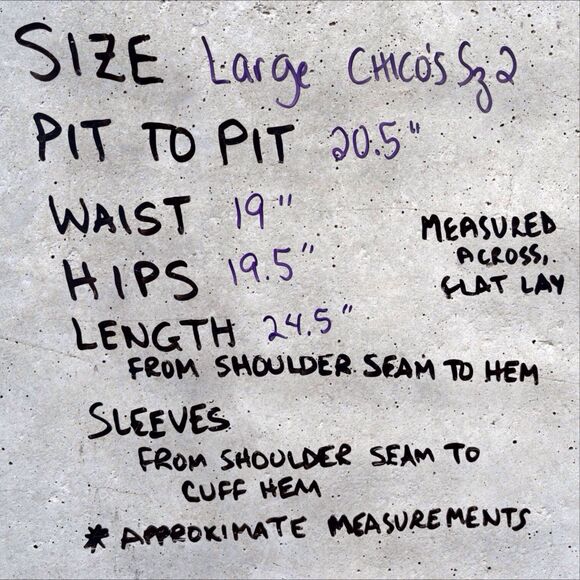 SIZE Large CHICO'S Sz 2
PIT TO PIT 20.5"
WAIST 19"
HIPS 19.5"
MEASURED
ACROSS,
FLAT LAY
LENGTH 24.5"
FROM SHOULDER SEAM TO HEM
SLEEVES
FROM SHOULDER SEAM TO
CUFF HEM
* APPROXIMATE MEASUREMENTS